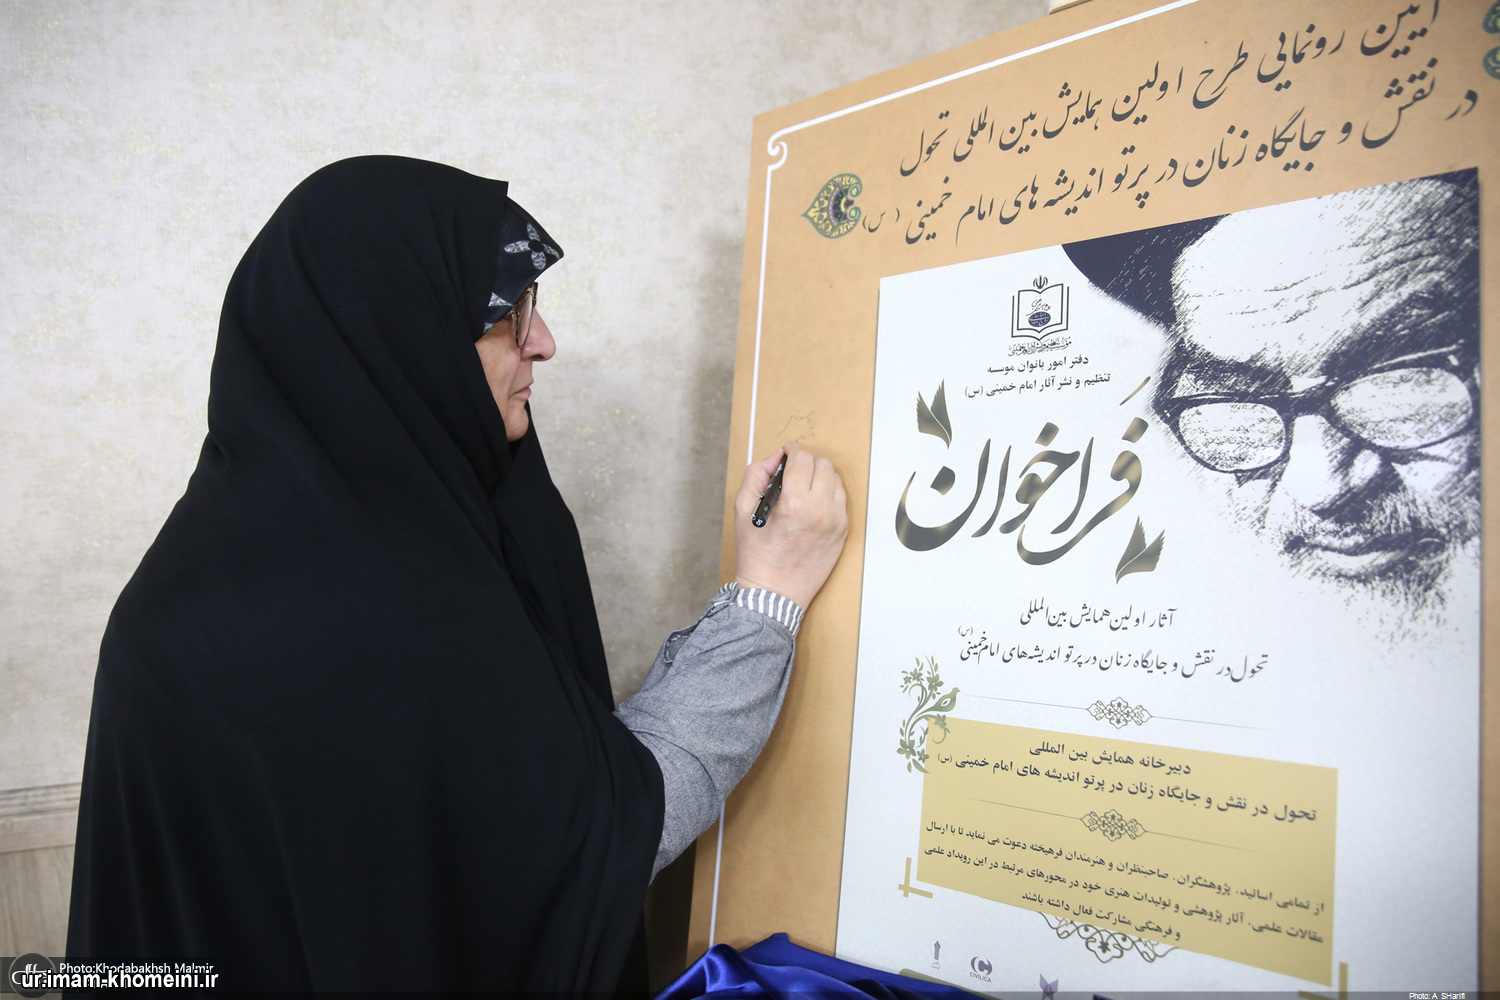 آیین رونمایی طرح اولین همایش بین المللی تحول
در نقش و جایگاه زنان در پرتو اندیشه های امام خمینی (س)
دفتر امور بانوان موسسه
تنظیم و نشر آثار امام خمینی (س)
فراخوان
آثار اولین همایش بین‌المللی
تحول در نقش و جایگاه زنان در پرتو اندیشه‌های امام خمینی (س)
دبیرخانه همایش بین المللی
تحول در نقش و جایگاه زنان در پرتو اندیشه های امام خمینی (س)
از تمامی اساتید، پژوهشگران، صاحبنظران و هنرمندان فرهیخته دعوت می نماید تا با ارسال
مقالات علمی، آثار پژوهشی و تولیدات هنری خود در محورهای مرتبط در این رویداد علمی
و فرهنگی مشارکت فعال داشته باشند
CIVILICA
Photo:Khodabakhsh Malmir
ur.imam-khomeini.ir
Photo: A. SHarifi